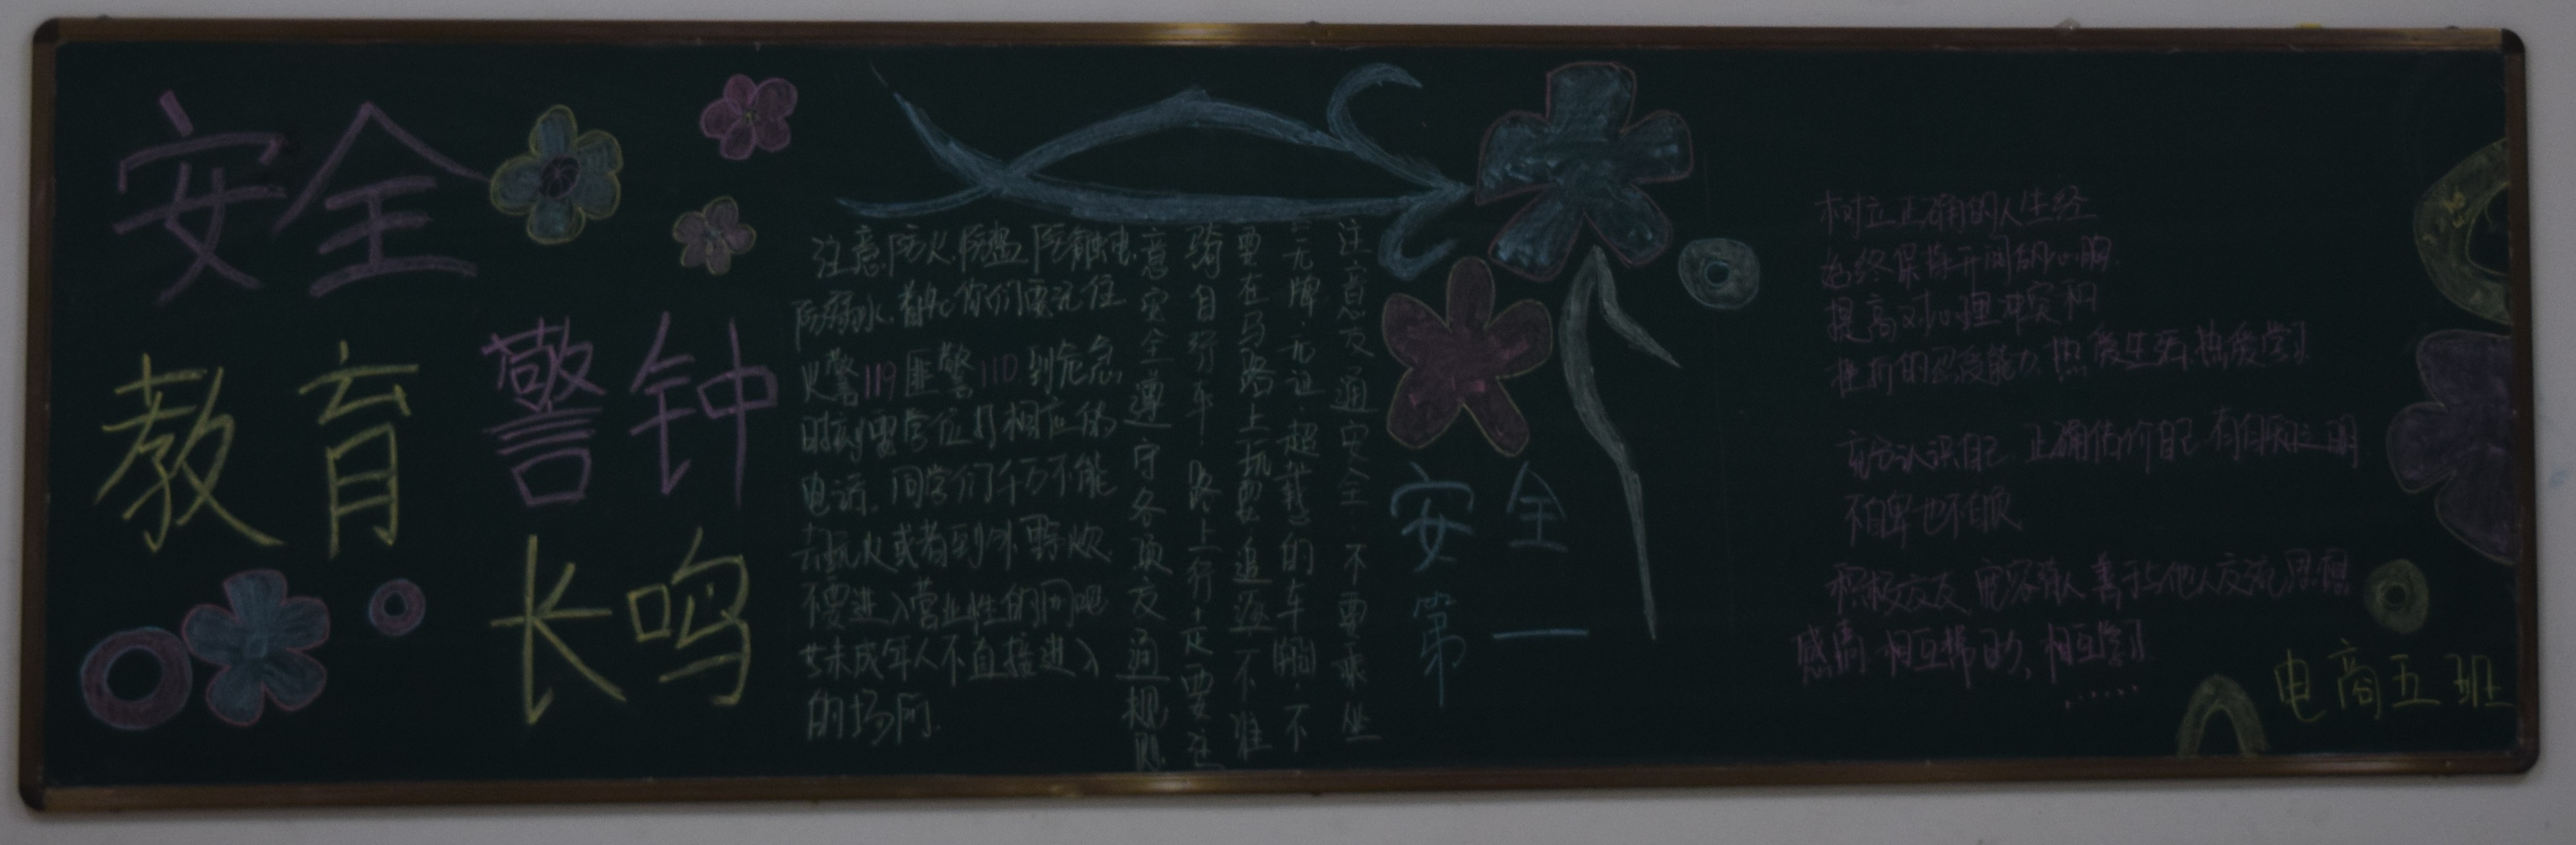 安全
教育
警钟
长鸣
注意防火.防盗.防触电.
防溺水.首先你们要记住
火警119匪警110.到危急
时刻要学位打相应的
电话.同学们千万不能
去玩火或者到外野炊.
不要进入营业性的网吧
未成年人不直接进入
的场所.
注意交通安全.不要乘坐
三无牌.无证.超载的车辆.不
要在马路上玩耍.追逐.不准
骑自行车.路上行走要注
意安全遵守各项交通规则
安全
第一
树立正确的人生经
始终保持开阔的心胸.
提高对心理冲突和
挫折的忍受能力.热爱生活.热爱学习
充分认识自己.正确估价自己.有自知之明
不自卑也不自
积极交友.宽容待人善于与他人交流思想
感情.相互帮助、相互学习
......
电商五班